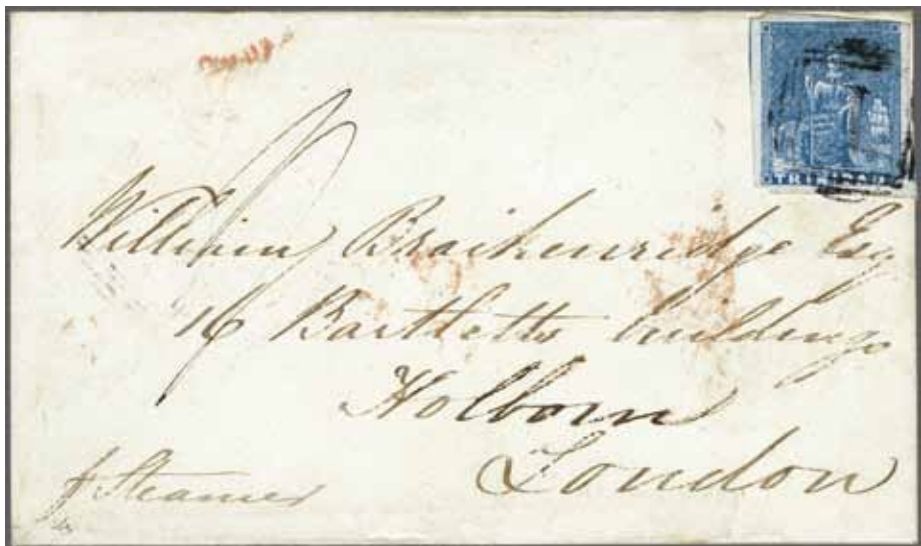 TRINIDAD
William Braikenridge Esq
16 Bartletts buildings
Holborn
London
p Steamer